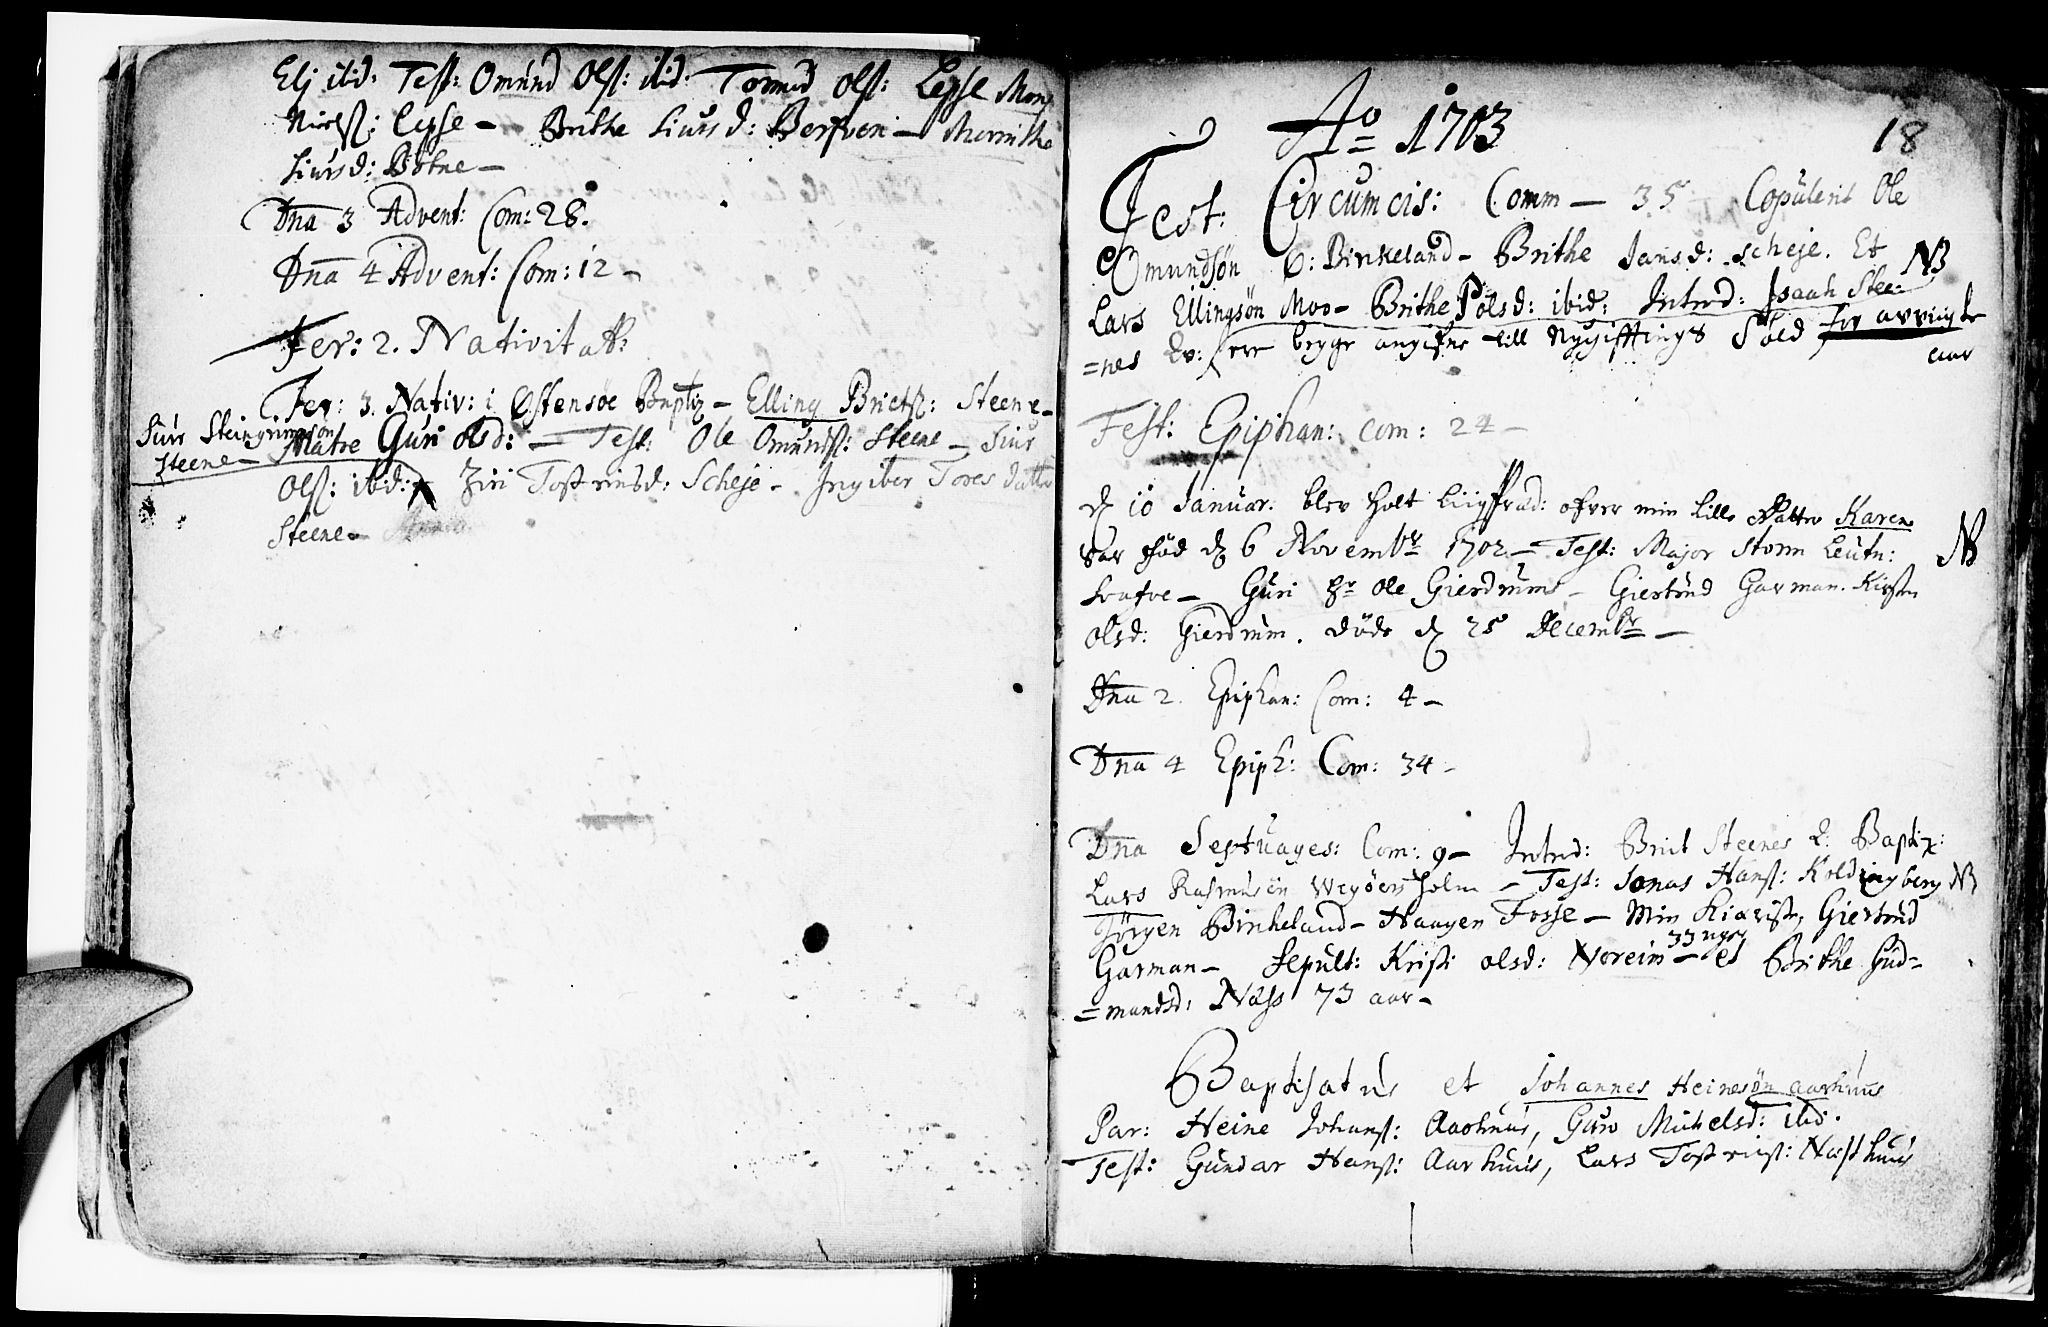 Elj ibid: Test: Omund Ols: ibid. Tormod Ols: Lepse Mons
Niels: Lepse – Brithe Siurs d: Berfven – Merrithe
Siurs d: Botne –
Dna 3 Advent: Com: 28.
Dna 4 Advent: Com: 12 –
Fer: 2. Nativitat:
Fer: 3. Nativ: i Østensøe Baptiz – Elling Brictz: Steene –
Siur Steingrimsøn
Steene –
Matre Guri olsd: – Test: Ole Omunds: Steene – Siur
Ols: ibid: Ziri Tostensd: Scheje – Ingiber Tores datter
Steene –
Ao 1703
18
Fest: Circumcis: Comm – 35 Copulerit Ole
Omundsøn Ø: Birkeland – Brithe Jansd: Scheje. Et NB
Lars Ellingsøn Moo – Brithe Polsd: ibid: Introd: Isaach Stee-
=nes Ev: ere begge angifne till Nygifftings Sold for
aar
Fest: Epiphan: com: 24 –
d 10 Januar: blev holt Liigpræd: ofver min lille datter Karen
var fød d 6 Novembr 1702 – Test: Major Storm Leutn: NB
Guri Hr Ole Gierdrums – Giertrud Garman. Kirsten
Olsd: Gierdrum. døde d 25 Decembr –
Dna 2. Epiphan: Com: 4 –
Dna 4 Epiph: Com: 34 –
Dna Septuages: Com: 9 – Introd: Brict Steenes Ev: Baptiz:
Lars Rasmusøn Wegøersholm – Test: Jonas Hans: Koldingberg NB
Jørgen Birkeland – Haagen Fosse – Min Kiæriste, Giertrud
33 uger
Garman – Sepult: Kristi olsd: Noreim – et Brithe Gud=
=mundsd: Næss 73 aar –
Baptisatus et Johannes Heinesøn Aarhuus
Par: Heine Johans: Aarhuus, Guro Michelsd: ibid.
Test: Gundar Hans: Aarhuus, Lars Tostens: Næsthuus